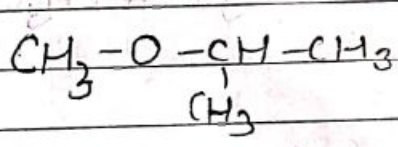 CH₃-O-CH-CH₃
CH₃